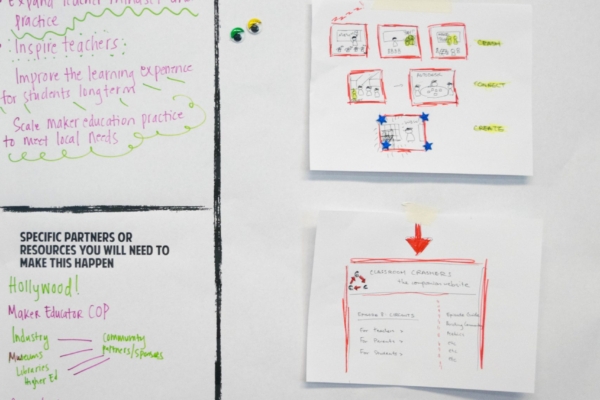 Expand Teacher Mindset and
practice
• Inspire teachers:
Improve the learning experience
for students longterm
Scale maker education practice
to meet local needs
SPECIFIC PARTNERS OR
RESOURCES YOU WILL NEED TO
MAKE THIS HAPPEN
Hollywood!
Maker Educator COP
Industry
Museums
Libraries
Higher Ed
community
partners/sponsors
CONNECT
CREATE
the companion website
For Teachers
For Parents
For Students
Episode Guide